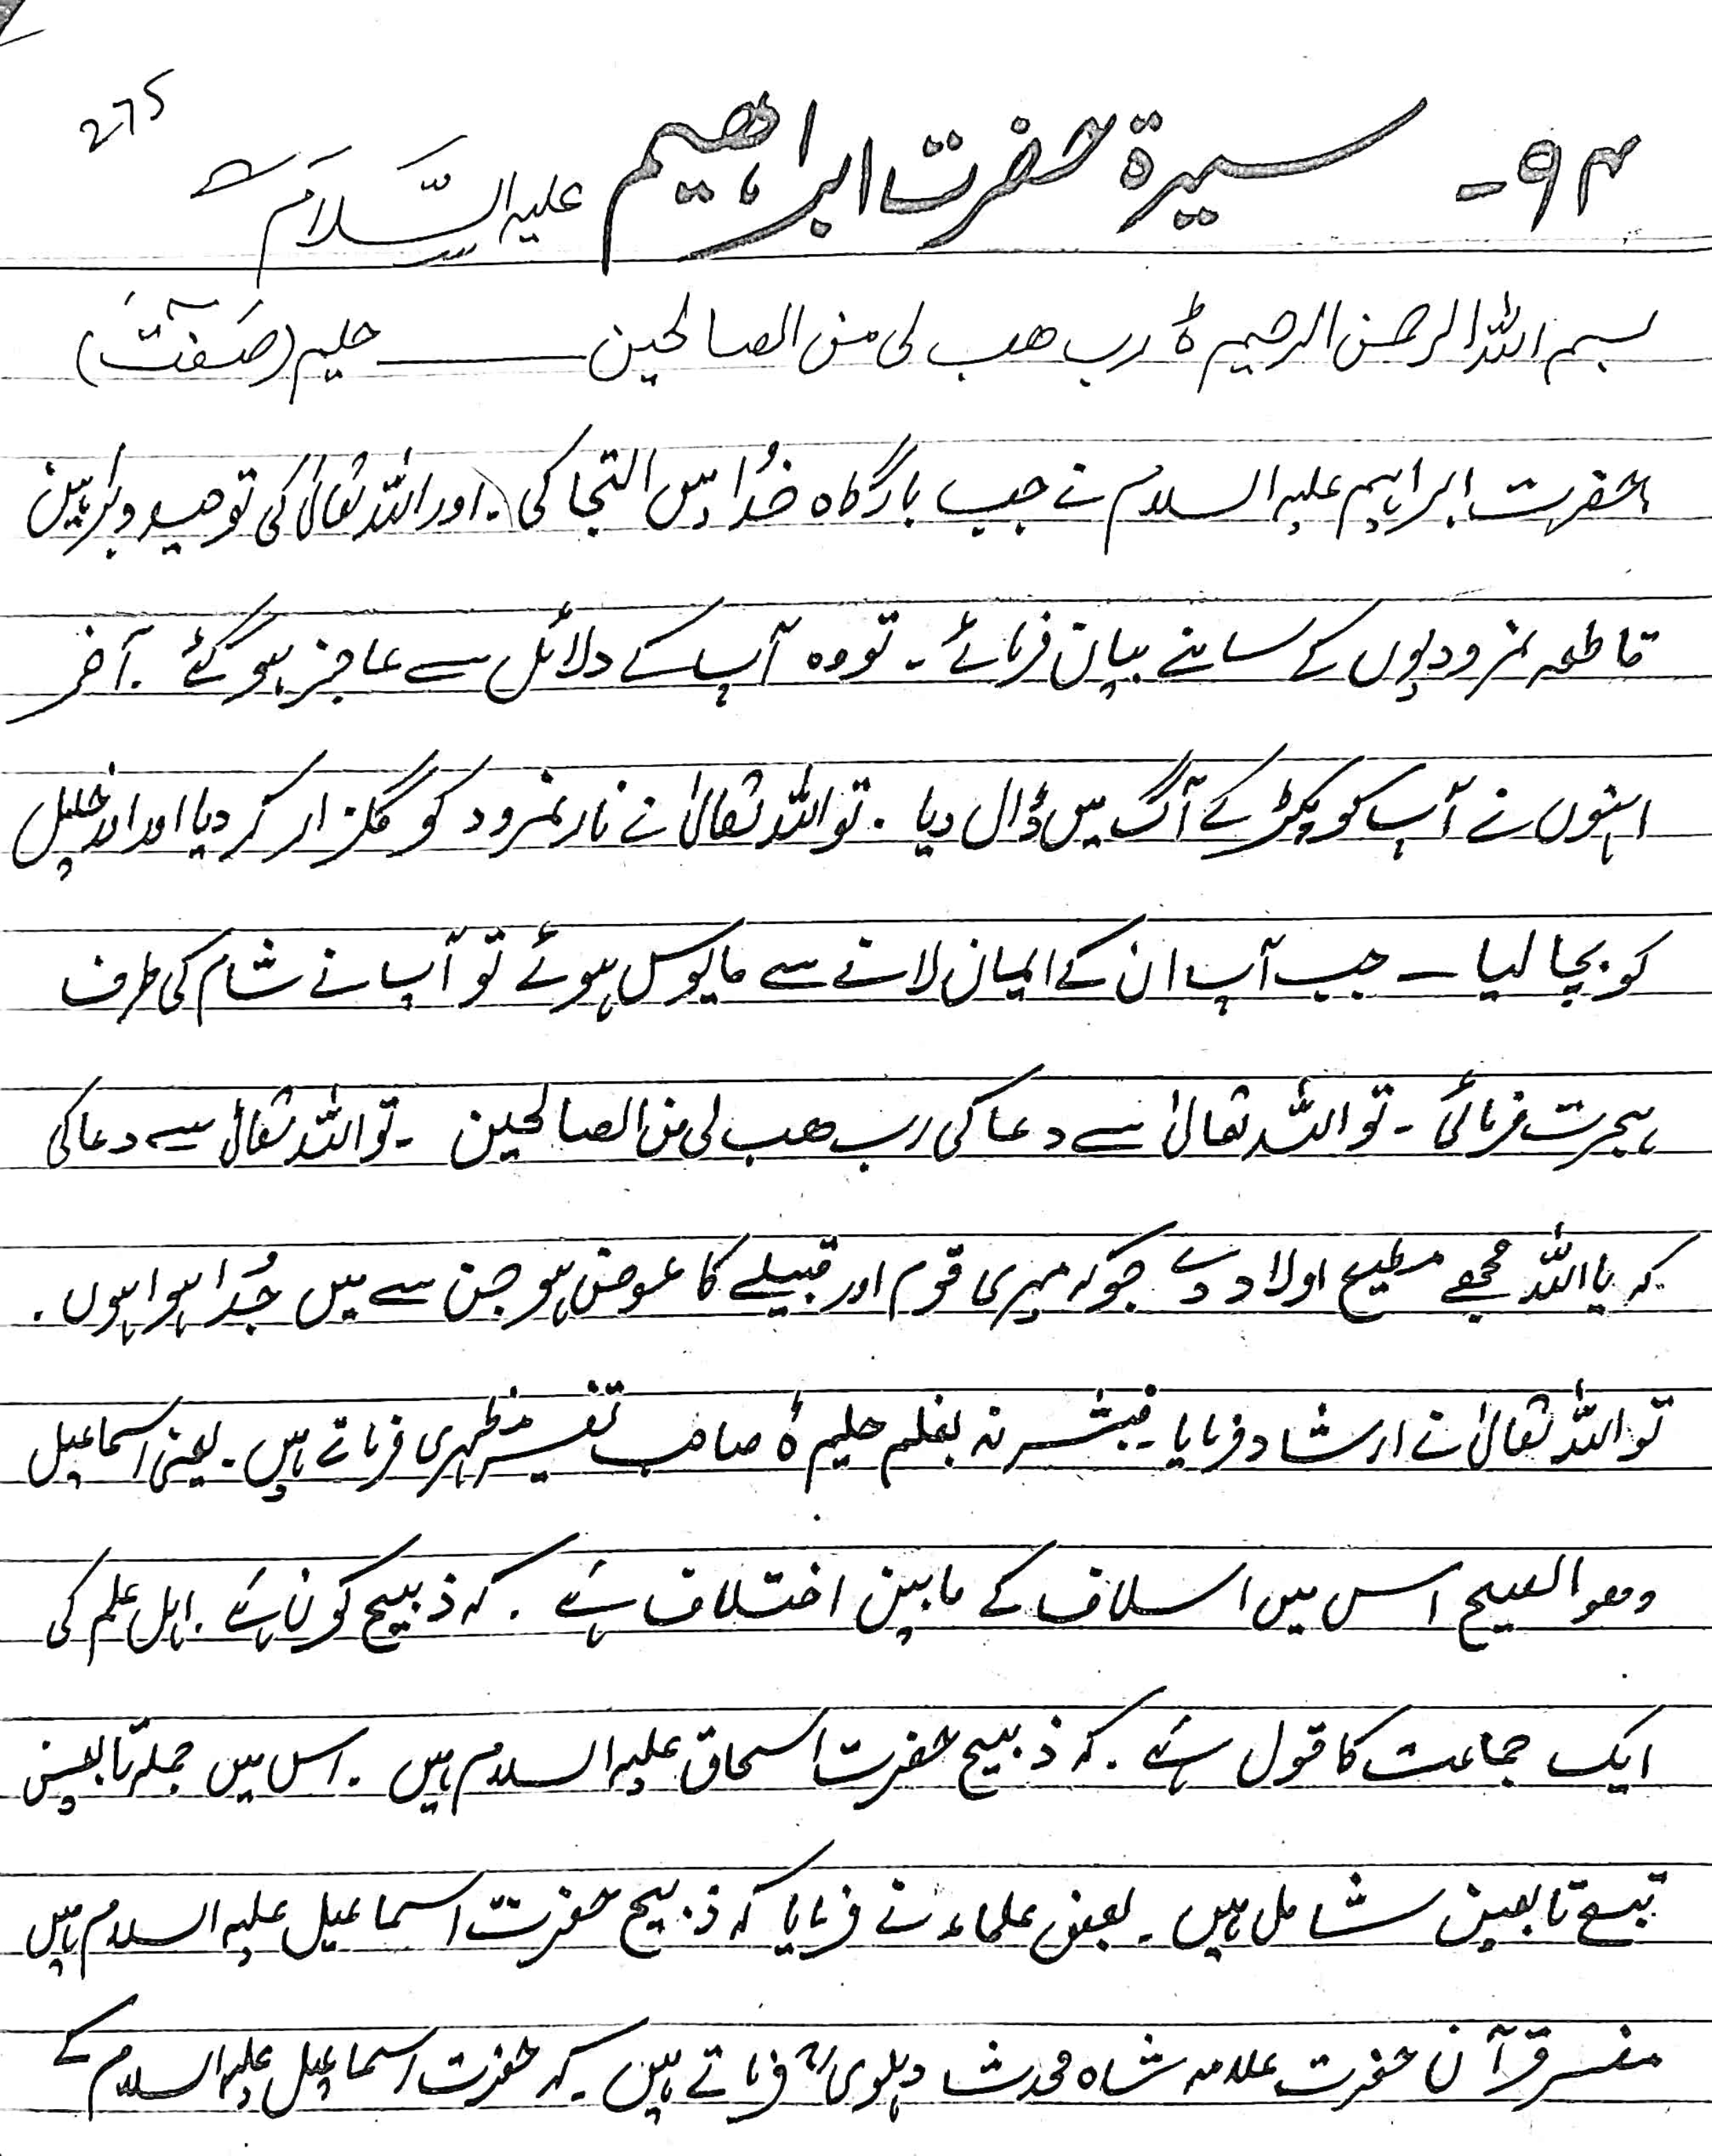 275
۹۴۔ سیرۃ حضرت ابراھیم علیہ السَّلَام
بسم اللہ الرحمن الرحیم ○ رب ھب لی من الصالحین ــــــ حلیم (صَفٰت)
حضرت ابراہیم علیہ السلام نے جب بارگاہ خُدا میں التجا کی۔ اور اللہ تعالیٰ کی توحید و براہین
قاطعہ نمرودیوں کے سامنے بیان فرمائے۔ تو وہ آپ کے دلائل سے عاجز ہو گئے۔ آخر
انہوں نے آپ کو پکڑ کے آگ میں ڈال دیا۔ تو اللہ تعالیٰ نے نار نمرود کو گلزار کر دیا اور اللہ خلیل
کو بچا لیا ــ جب آپ ان کے ایمان لانے سے مایوس ہوئے تو آپ نے شام کی طرف
ہجرت فرمائی۔ تو اللہ تعالیٰ سے دعا کی رب ھب لی من الصالحین۔ تو اللہ تعالیٰ سے دعا کی
کہ یا اللہ مجھے مطیع اولاد دے جو کہ میری قوم اور قبیلے کا عوض ہو جن سے میں جُدا ہوا ہوں۔
تو اللہ تعالیٰ نے ارشاد فرمایا۔ فبشرنہ بغلم حلیم ○ صاحب تفسیر مظہری فرماتے ہیں۔ یعنی اسماعیل
وھو الصیح اس میں اسلاف کے مابین اختلاف ہے۔ کہ ذبیح کون ہے۔ اہل علم کی
ایک جماعت کا قول ہے۔ کہ ذبیح حضرت اسحاق علیہ السلام ہیں۔ اس میں جملہ تابعین
تبع تابعین شامل ہیں۔ بعض علماء نے فرمایا کہ ذبیح حضرت اسماعیل علیہ السلام ہیں
مفسر قرآن حضرت علامہ شاہ محدث دہلویؒ فرماتے ہیں۔ کہ حضرت اسماعیل علیہ السلام کے